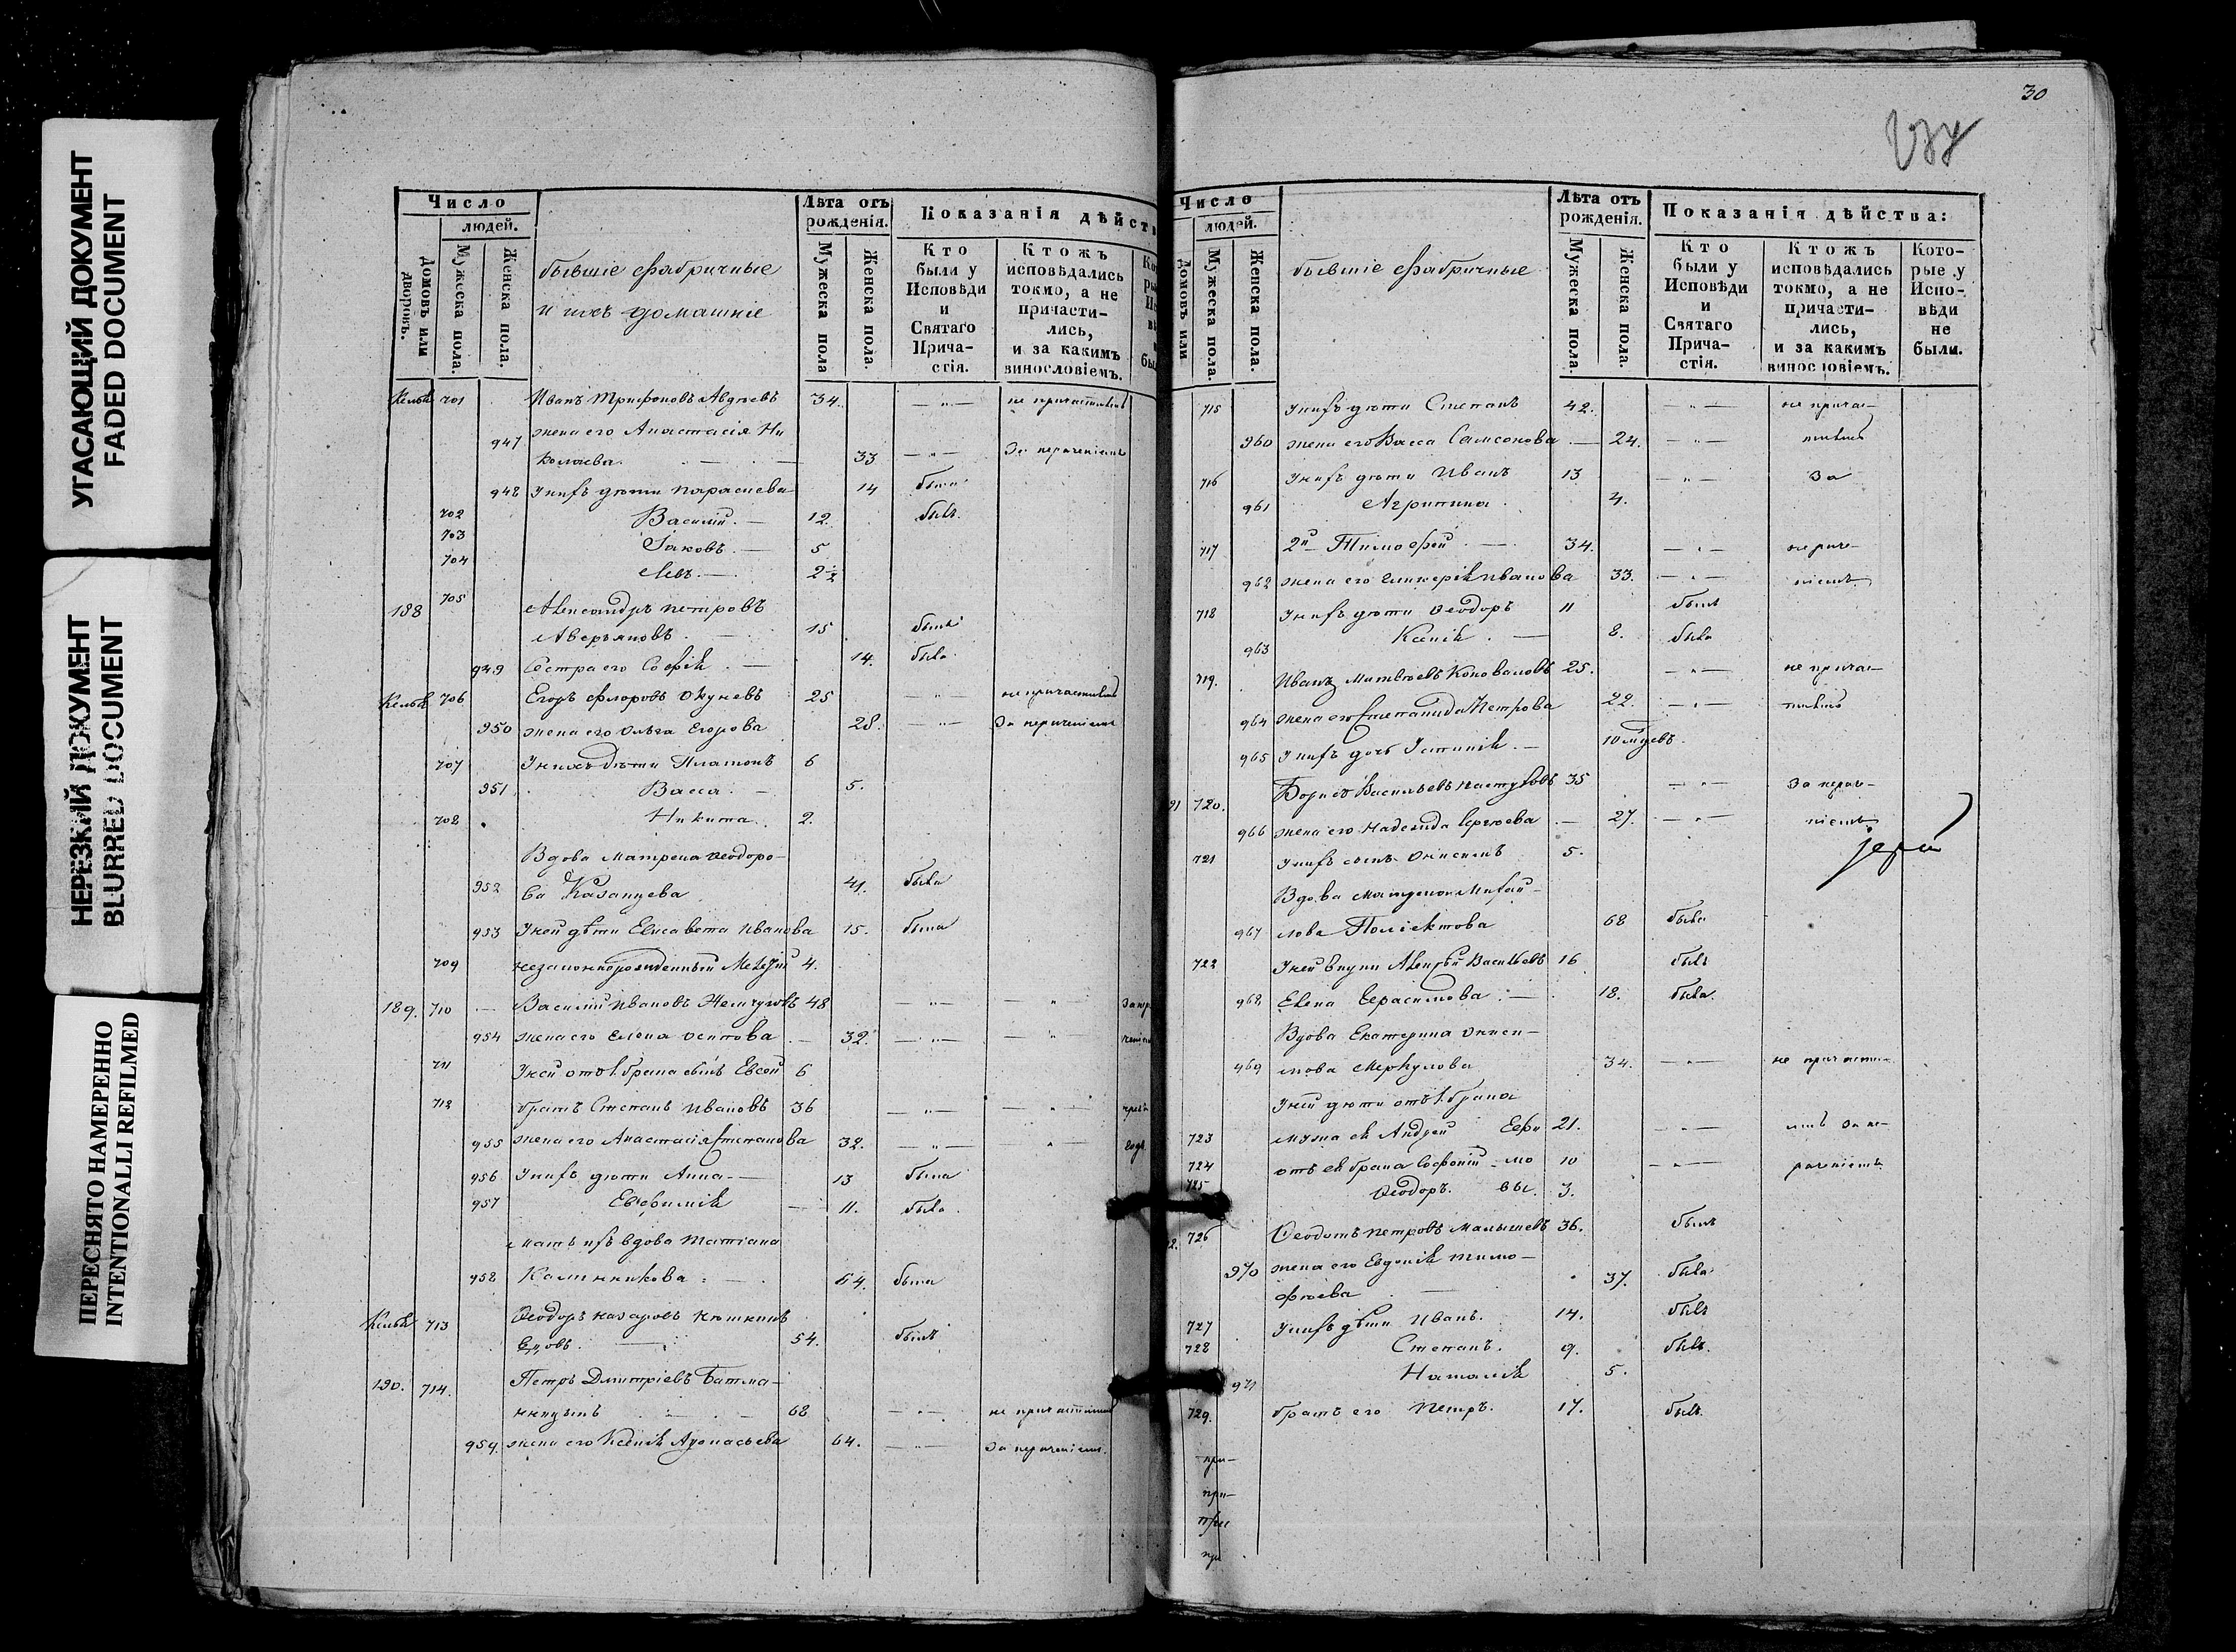 УГАСАЮЩИЙ ДОКУМЕНТ
FADED DOCUMENT
НЕРЕЗКИЙ ДОКУМЕНТ
BLURRED DOCUMENT
ПЕРЕСНЯТО НАМЕРЕННО
INTENTIONALLI REFILMED
Число
людей.
Домовъ или дворовъ.
Мужеска пола.
Женска пола.
бывшіе фабричные
и ихъ домашніе
Лѣта отъ рожденія.
Мужеска пола
Женска пола.
Показанія дѣйств
Кто были у Исповѣди и Святаго Причастія.
Ктожъ исповѣдались токмо, а не причастились, и за какимъ винословіемъ.
Келья 701 Иванъ Трифоновъ Авдѣевъ 34. — " — не причастились
947 жена его Анастасія Ни
колаева. 33 — " — За нераченіемъ
948 У нихъ дѣти Параскева 14 была
702 Василій. — 12. былъ.
703 Іаковъ. — 5
704 Левъ. — 2 ½
188 705 Александръ Петровъ
Аверьяновъ. — 15 былъ
949 Сестра его Софія. — 14. была
Келья 706 Егоръ Флоровъ Окуневъ 25 — " — не причастились
950 жена его Ольга Егорова 28. — " — За нераченіемъ
707 У нихъ дѣти Платонъ 6
951 Васса. — 5.
708 Никита. 2.
Вдова Матрена Ѳеодоро-
952 ва Казанцева 41. была
953 У ней дѣти Елисавета Иванова 15. была
709 незаконнорожденный 4.
189. 710 — Василій Ивановъ Жемчуговъ 48 — " — — "
954 жена его Елена Осипова — 32. — " — — "
711 У ней отъ 1. брака сынъ Евсей 6
712 братъ Степанъ Ивановъ 36 — " — — " —
955 жена его Анастасія Степанова 32. — " — "
956 У нихъ дѣти Анна — 13 была
957 Евѳимія — 11. была.
Мать ихъ вдова Татіана
958 Калинникова. — 64. была
Келья 713 Ѳеодоръ Назаровъ
вдовъ. — 54. былъ
190. 714. Петръ Дмитріевъ
68 — " — не причастились
959. жена его Ксенія Аѳанасьева 64. — " — За нераченіемъ.
30
Число
людей.
Домовъ или
Мужеска пола.
Женска пола.
бывшіе фабричные
Лѣта отъ рожденія.
Мужеска пола.
Женска пола.
Показанія дѣйства:
Кто были у Исповѣди и Святаго Причастія.
Ктожъ исповѣдались токмо, а не причастились, и за какимъ винословіемъ.
Которые у Исповѣди не были.
715 У нихъ дѣти Степанъ 42. — " — не прича-
960 жена его Васса Самсонова — 24. — " — стились
716 У нихъ дѣти Иванъ 13 — " — За
961 Агрипина. 4.
717 2й Тимофей — 34. — " — нераче-
962 жена его Гликерія Иванова 33. — " — ніемъ.
718 У нихъ дѣти Ѳеодоръ 11 былъ
963 Ксенія. — 8. была
719. Иванъ Матвѣевъ Коноваловъ 25. — " — не прича-
964 жена его Степанида Петрова 22. — " — стились
965 У нихъ дочь Устинія. — 10 мцевъ.
91 720. Борисъ Васильевъ Пастуховъ 35 — " — За нерач-
966 жена его Надежда Сергѣева — 27. — " — ніемъ
721 У нихъ сынъ Онисимъ 5.
іерей
Вдова Матрена Михай-
967 лова Поліектова 68 была
722 У ней внуки Алексѣй Васильевъ 16 былъ
968 Елена Герасимова. — 18. была.
Вдова Екатерина Ониси-
969 мова Меркулова 34. — " — не причасти-
У ней дѣти отъ 1. брака
723 мужа ея Андрей 21. — " — лись за не-
724 отъ ея брака Софоній 10 — " — раченіемъ
725 Ѳеодоръ. 3.
92. 726 Ѳеодотъ Петровъ Малышевъ 36. былъ
970 жена его Евдокія Тимо-
фѣева — 37. была
727 У нихъ дѣти Иванъ. 14. былъ
728 Степанъ. 9. былъ.
971 Наталія 5.
729. братъ его Петръ. 17. былъ.
при-
при-
при
пр